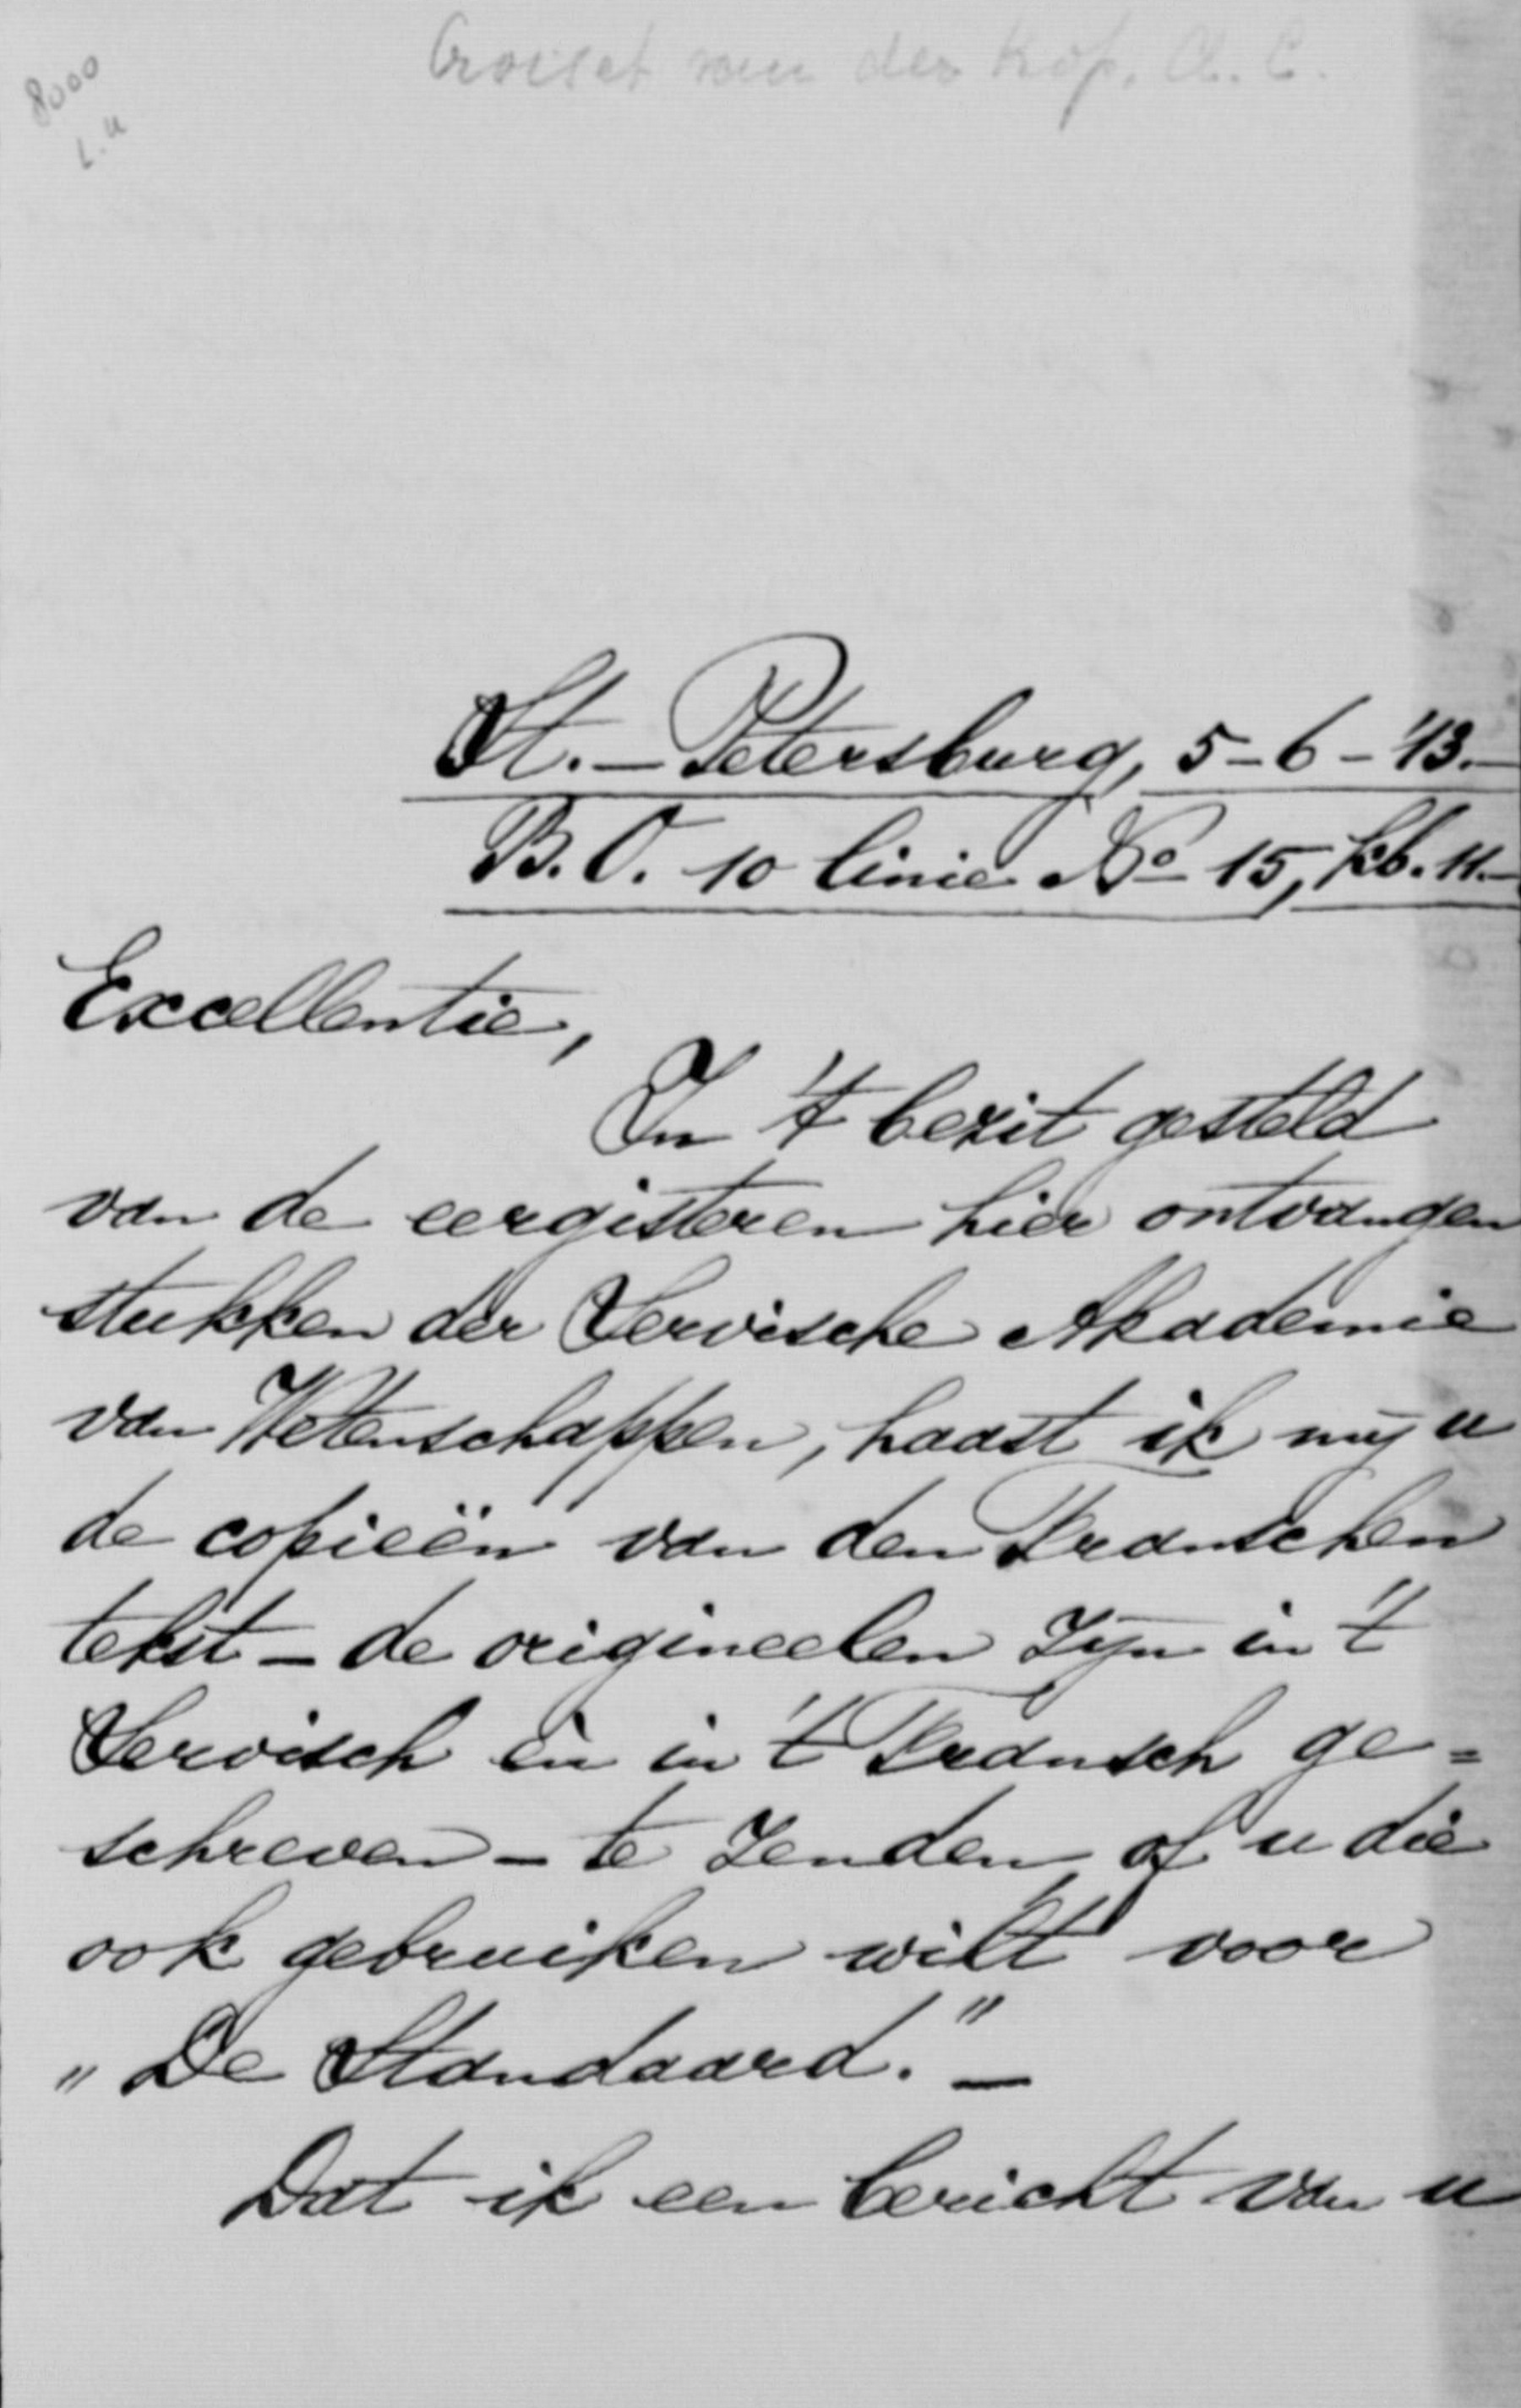 8000
L.u
Croiset van der Kop. A. C.
St.-Petersburg, 5-6-'13.-
B.O. 10 linie No 15, kb. 11.-
Excellentie,
In 't bezit gesteld
van de eergisteren hier ontvangen
stukken der Servische Akademie
van Wetenschappen, haast ik mij u
de copieën van den Franschen
tekst - de origineelen zijn in 't
Servisch en in 't Fransch ge=
schreven - te zenden, of u die
ook gebruiken wilt voor
„De Standaard." -
Dat ik een bericht van u